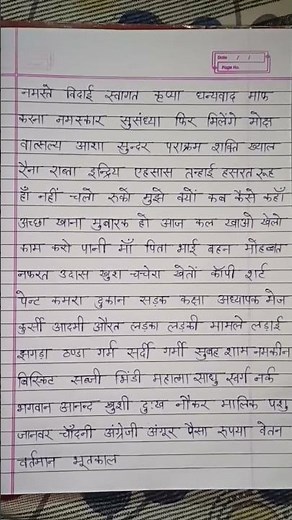 Date / /
Page No.
नमस्ते विदाई स्वागत कृप्या धन्यवाद माफ
करना नमस्कार सुसंध्या फिर मिलेंगे मोक्ष
वात्सल्य आशा सुन्दर पराक्रम शक्ति ख्याल
रैना राब्ता इन्द्रिय एहसास तन्हाई हसरत रूह
हाँ नहीं चलो रुको मुझे क्यों कब कैसे कहाँ
अच्छा खाना मुबारक हो आज कल खाओ खेलो
काम करो पानी माँ पिता भाई बहन मोहब्बत
नफरत उदास खुश चचेरा खेतों कॉपी शर्ट
पेन्ट कमरा दुकान सड़क कक्षा अध्यापक मेज
कुर्सी आदमी औरत लडका लडकी मामले लड़ाई
झगड़ा ठण्डा गर्म सर्दी गर्मी सुबह शाम नमकीन
बिस्किट सब्जी भिंडी महात्मा साधु स्वर्ग नर्क
भगवान आनन्द खुशी दुःख नौकर मालिक पशु
जानवर चाँदनी अंग्रेजी अंगूर पैसा रुपया वेतन
वर्तमान भूतकाल